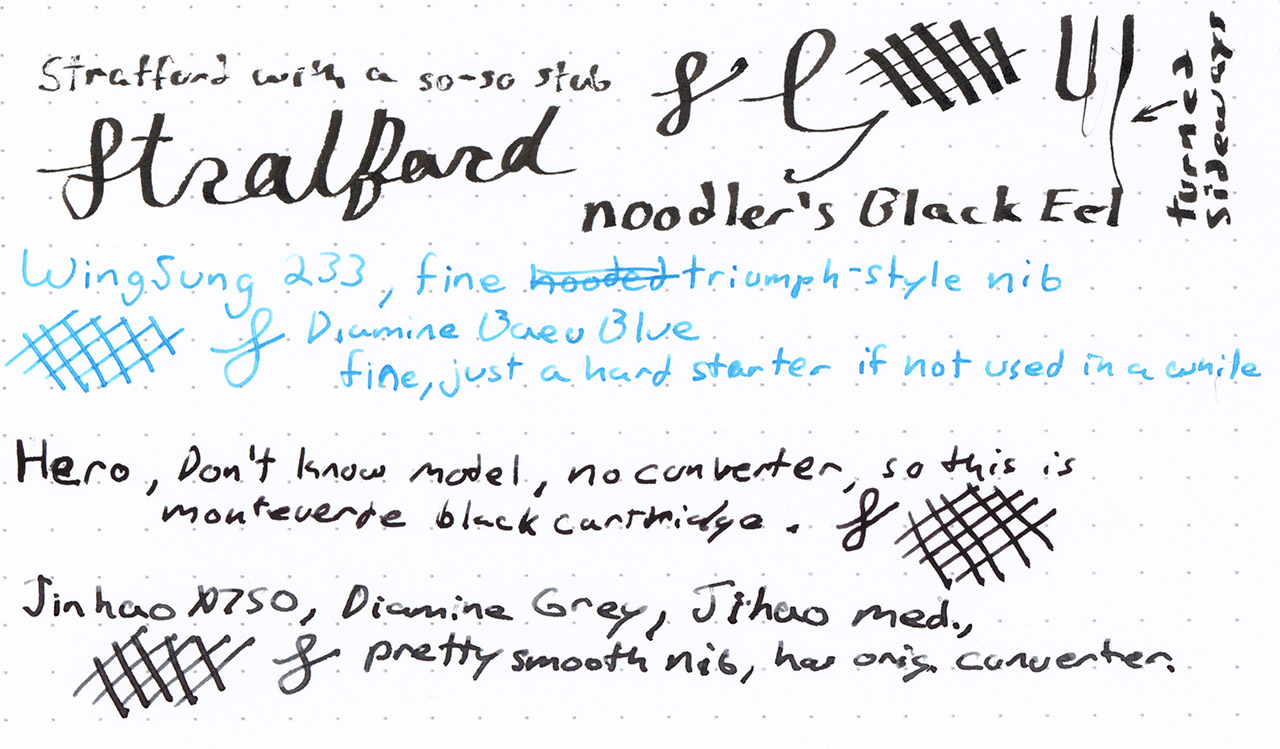 Stratford with a so-so stub
Stratford
noodler's Black Eel
turned
sideways
WingSung 233, fine hooded triumph-style nib
Diamine Baeu Blue
fine, just a hard starter if not used in a while
Hero, Don't know model, no converter, so this is
monteverde black cartridge.
Jinhao X750, Diamine Grey, Jihao med.,
pretty smooth nib, has orig. converter.